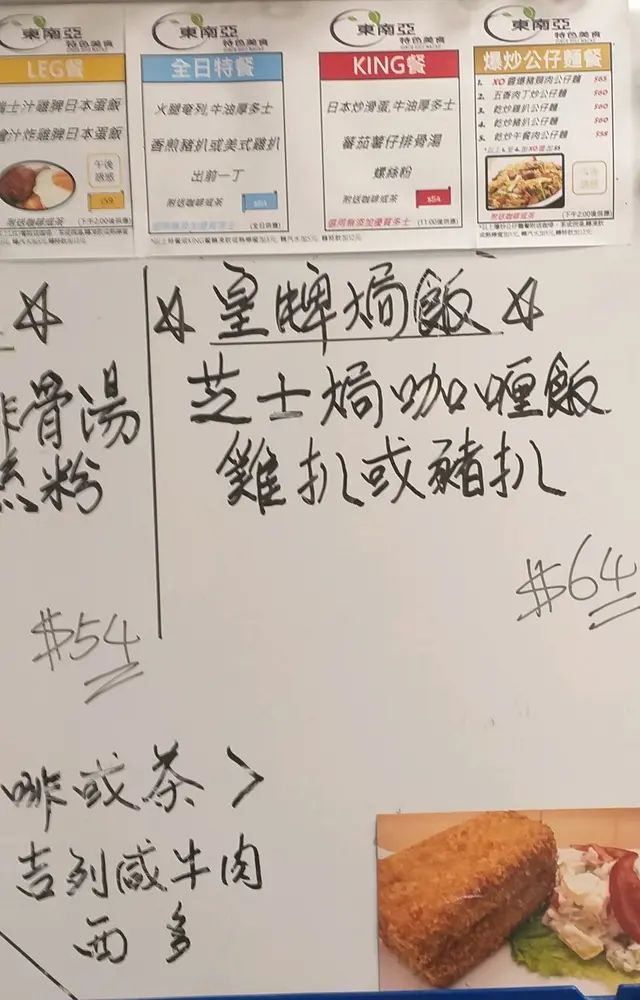 東南亞
特色美食
LEG餐
瑞士汁雞髀日本蛋飯
燴汁炸雞髀日本蛋飯
午後
誘惑
$59
附送咖啡或茶
(下午2:00後供應)
東南亞
特色美食
全日特餐
火腿奄列,牛油厚多士
香煎豬扒或美式雞扒
出前一丁
附送咖啡或茶
$64
(全日供應)
東南亞
特色美食
KING餐
日本炒滑蛋,牛油厚多士
蕃茄薯仔排骨湯
螺絲粉
附送咖啡或茶
$54
選用無添加優質多士
(11:00後供應)
東南亞
特色美食
爆炒公仔麵餐
1. XO醬爆豬頸肉公仔麵 $65
2. 五香肉丁炒公仔麵 $60
3. 乾炒雞扒公仔麵 $60
4. 乾炒豬扒公仔麵 $60
5. 乾炒午餐肉公仔麵 $58
附送咖啡或茶
(下午2:00後供應)
☆
排骨湯
絲粉
$54
☆ 皇牌焗飯 ☆
芝士焗咖喱飯
雞扒或豬扒
$64
啡或茶>
吉列咸牛肉
西多